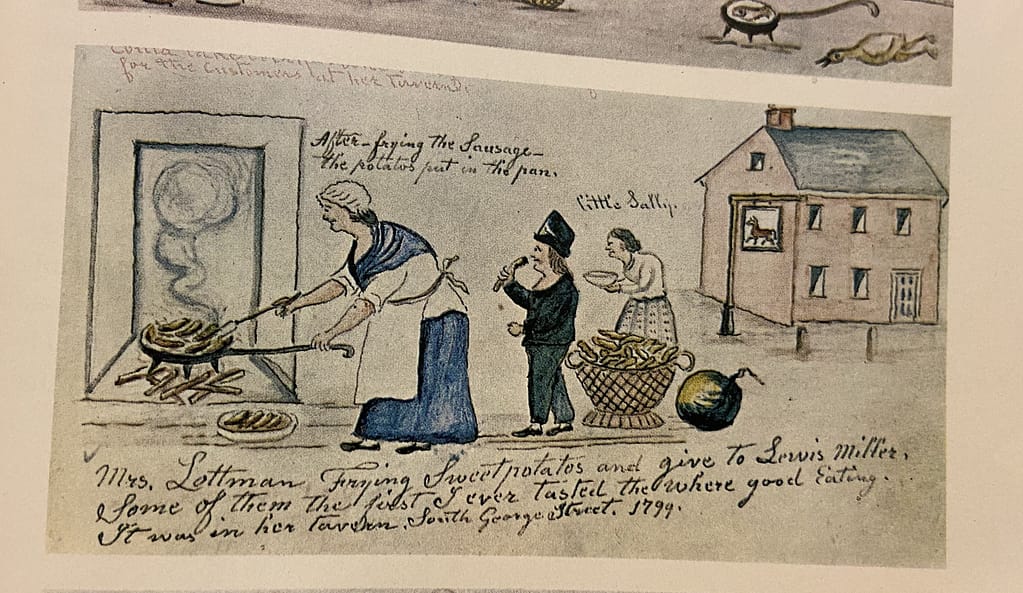 for the Customers at her Tavern.
After-frying the Sausage-
the potatos put in the pan.
little Sally.
Mrs. Lottman Frying Sweetpotatos and give to Lewis Miller,
Some of them the first I ever tasted the where good Eating.
It was in her tavern. South George Street. 1799.